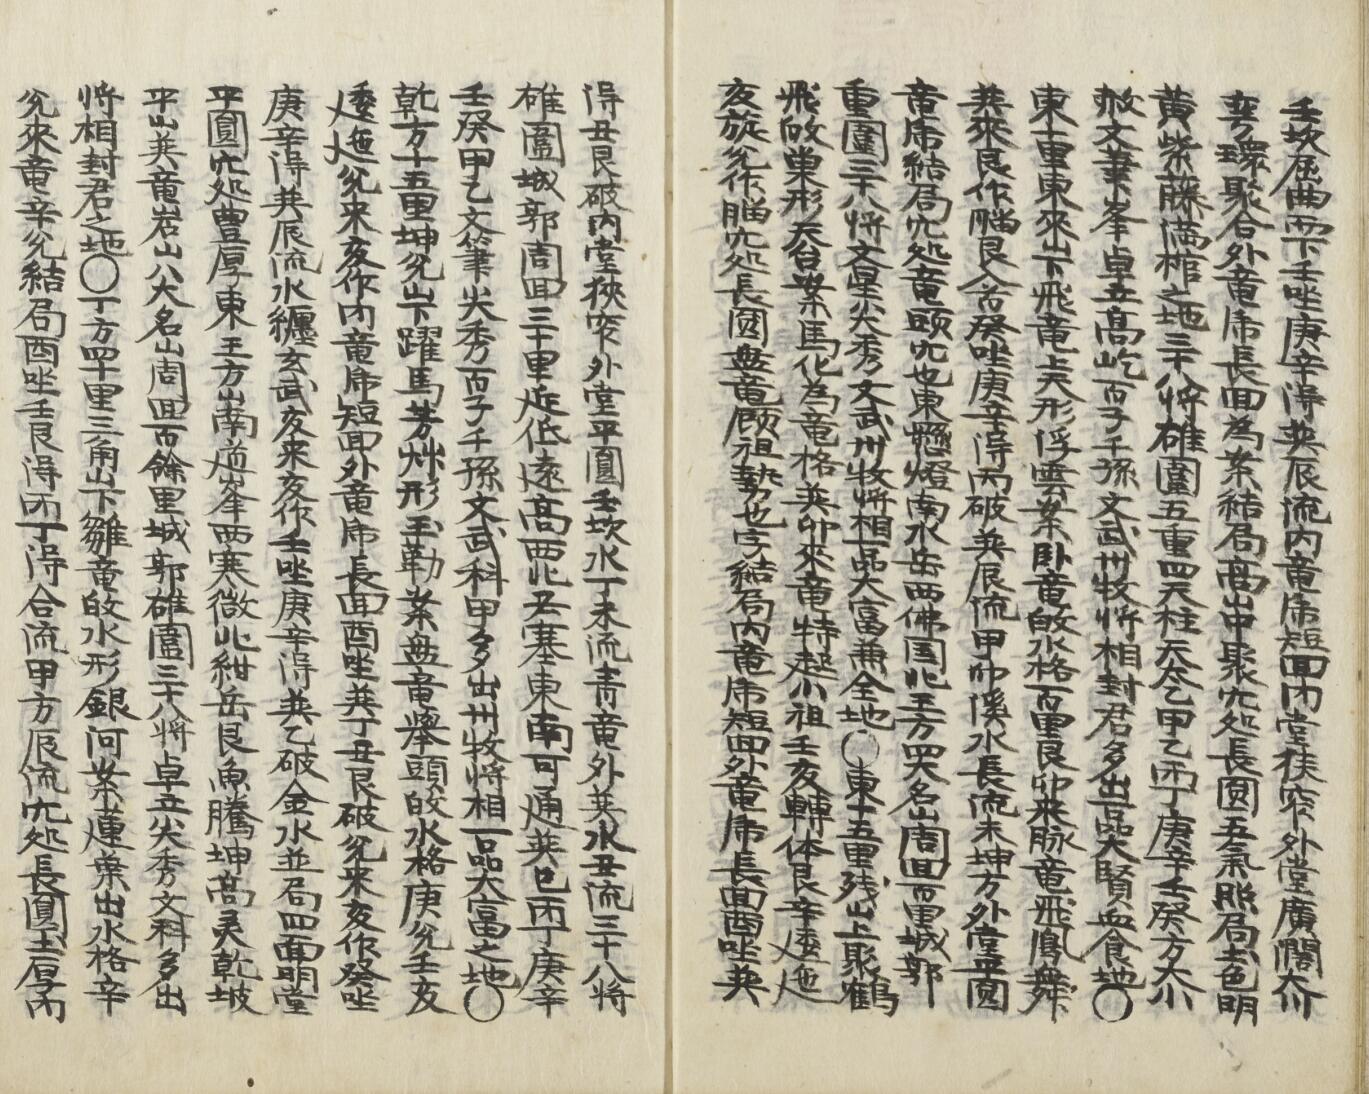 壬坎屈曲而下壬坐庚辛淂巽辰流内竜席短回内堂挟窄外堂廣濶大川
弯環聚合外竜席長回為案結局高山中聚穴処長圓五氣照局土色明
黄紫藤满棺之地三千八將碓圍五重四天柱天太乙甲乙丙丁庚辛壬癸方大小
敕文筆峯卓立高屹百子千孫文武州牧將相封君多出一品大賢血食地〇
東十里東來山下飛竜上天形浮雲案卧竜飮水格一百里艮卯来脉竜飛鳯舞
巽來艮作腦艮入首癸坐庚辛淂丙破巽辰流甲卯溪水長流未坤方外堂平圓
竜席結局穴処竜頭穴也東懸燈南水岳西佛国北王方四大名山周回百里城郭
重圍三十八將文星尖秀文武州牧將相一品大富兼全地〇東十五里残山上聚鶴
飛啟巢形天台案馬化為竜格巽卯來竜特起小祖壬亥轉体艮辛逶迤
亥旋兊作腦穴処長圓盘竜顧祖勢也字結局内竜席短回外竜席長回酉坐巽
淂丑艮破内堂狹窄外堂平圓壬坎水丁未流青竜外巽水丑流三十八將
碓圍城郭周回三十里近低遠高西北丕塞東南可通巽巳丙丁庚辛
壬癸甲乙文筆尖秀百子千孫文武科甲多出州牧將相一品大富之地〇
乾方十五里坤兊山下躍馬芳艸形玉勒案盘竜擧頭飮水格庚兊壬亥
逶迤兊来亥作内竜席短回外竜席長回酉坐巽丁丑艮破兊來亥作癸坐
庚辛淂巽辰流水纒玄武亥来亥作壬坐庚辛淂巽乙破金水並局四面明堂
平圓穴処豊厚東王方山南道峯西寒微北紺岳艮魚騰坤高灵乾坡
平山巽竜岩山八大名山周回百餘里城郭碓圍三十八將卓立尖秀文科多出
將相封君之地〇丁方四十里三角山下雛竜飮水形銀河案運巢出水格辛
兊來竜辛兊結局酉坐壬艮淂丙丁淂合流甲方辰流穴処長圓土厚丙